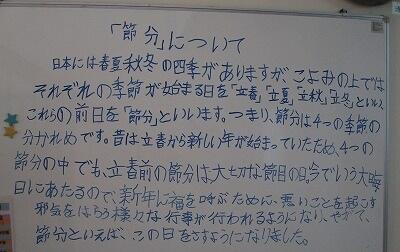 「節分」について
日本には春夏秋冬の四季がありますが、こよみの上では
それぞれの季節が始まる日を「立春」「立夏」「立秋」「立冬」といい、
これらの前日を「節分」といいます。つまり、節分は4つの季節の
分かれめです。昔は立春から新しい年が始まっていたため、4つの
節分の中でも、立春前の節分は大切な節目の日。今でいう大晦
日にあたるので、新年に福を呼ぶために、悪いことを起こす
邪気をはらう様々な行事が行われるようになり、やがて、
節分といえば、この日をさすようになりました。